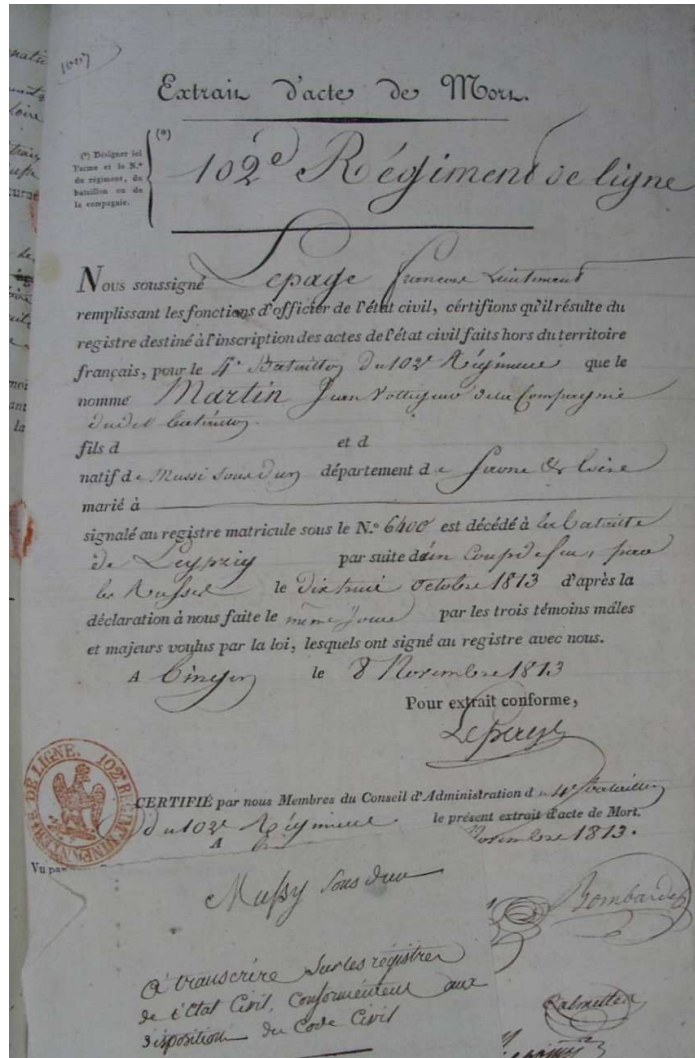 1007
Extrait d'acte de Mort.
(*) Désigner ici
l'arme et le N.º
du régiment, du
bataillon ou de
la compagnie.
(*)
102e Régiment de ligne
Nous soussigné Lepage francois Lieutenant
remplissant les fonctions d'officier de l'état civil, cértifions qu'il résulte du
registre destiné à l'inscription des actes de l'état civil faits hors du territoire
français, pour le 4e Bataillon du 102e Régiment que le
nommé Martin Jean Voltigeur de la Compagnie
dudit bataillon.
fils d et d
natif de Mussi sous dun département de Saone & Loire
marié à
signalé au registre matricule sous le N.º 6400 est décédé à la bataille
de Leypzig par suite d'un coup de feu, par
les Russes le dix huit octobre 1813 d'après la
déclaration à nous faite le même jour par les trois témoins mâles
et majeurs voulus par la loi, lesquels ont signé au registre avec nous.
A le 8 Novembre 1813
Pour extrait conforme,
Lepage
102e REGT D'INFANTERIE DE LIGNE.
CERTIFIÉ par nous Membres du Conseil d'Administration du 4e Bataillon
du 102e Régiment le présent extrait d'acte de Mort.
A Novembre 1813.
Vu par
Mussy sous dun
Bombarde
à transcrire sur les régistres
de l'Etat Civil, Conformément aux
disposition du Code Civil